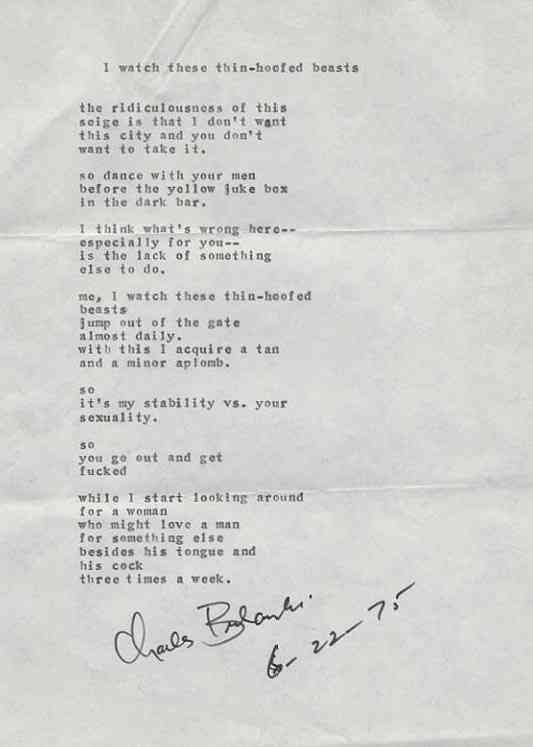 I watch these thin-hoofed beasts
the ridiculousness of this
seige is that I don't want
this city and you don't
want to take it.
so dance with your men
before the yellow juke box
in the dark bar.
I think what's wrong here--
especially for you--
is the lack of something
else to do.
me, I watch these thin-hoofed
beasts
jump out of the gate
almost daily.
with this I acquire a tan
and a minor aplomb.
so
it's my stability vs. your
sexuality.
so
you go out and get
fucked
while I start looking around
for a woman
who might love a man
for something else
besides his tongue and
his cock
three times a week.
Charles Bukowski.
6-22-75